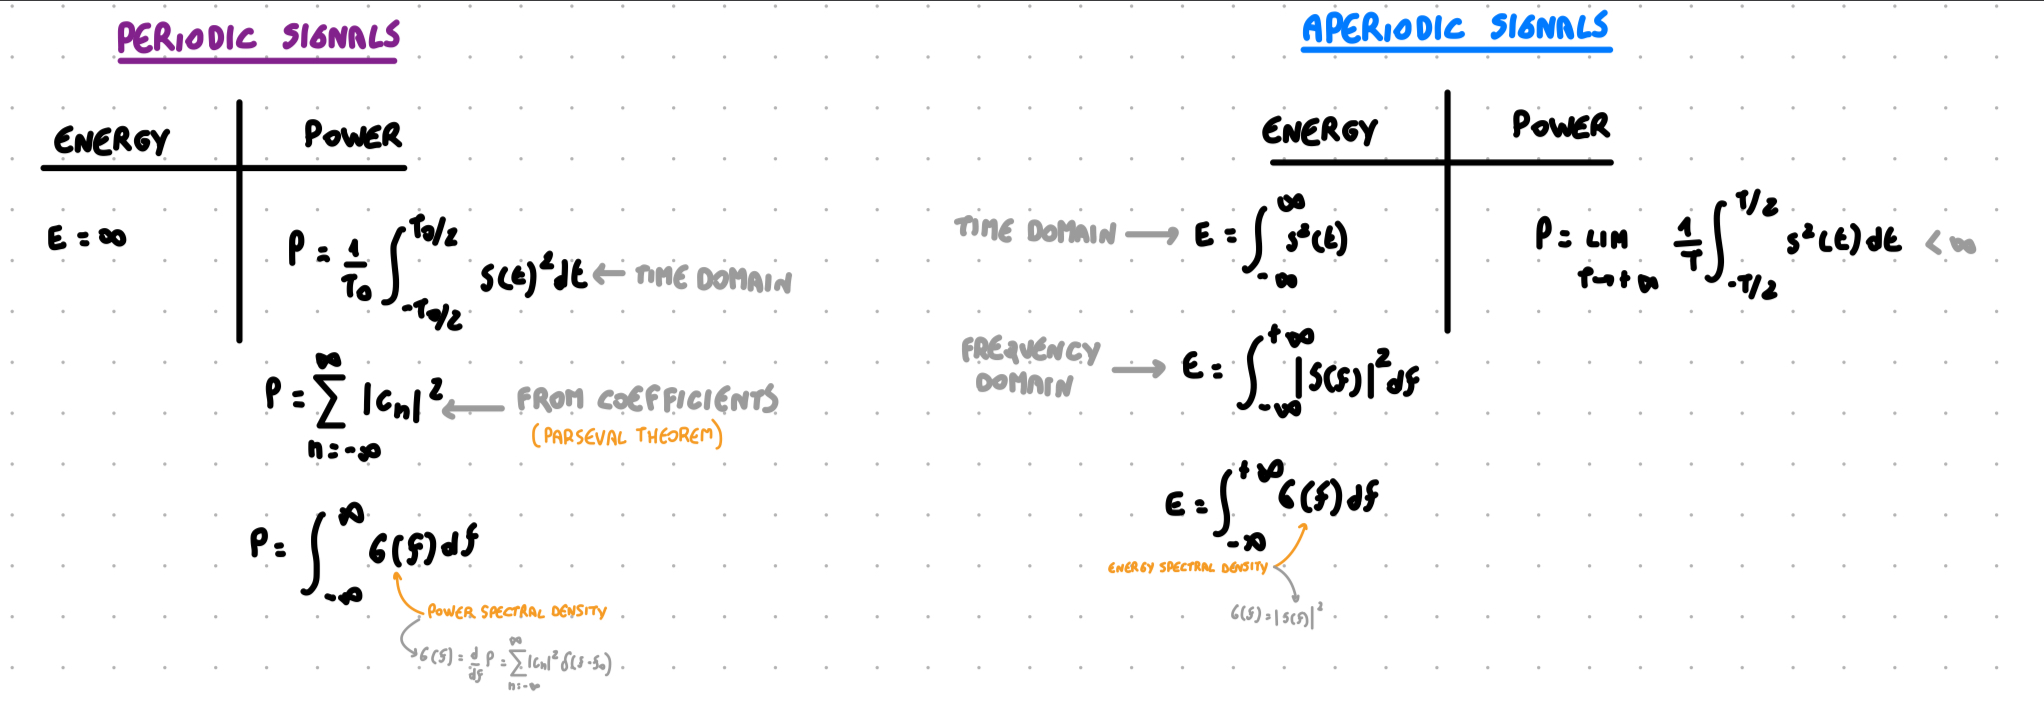 PERIODIC SIGNALS
ENERGY POWER
E = ∞
P = 1/T₀ ∫_{-T₀/2}^{T₀/2} s(t)² dt ← TIME DOMAIN
P = ∑_{n=-∞}^{∞} |cₙ|² ← FROM COEFFICIENTS
(PARSEVAL THEOREM)
P = ∫_{-∞}^{∞} G(f) df
POWER SPECTRAL DENSITY
G(f) = d/df P = ∑_{n=-∞}^{∞} |cₙ|² δ(f-f₀)
APERIODIC SIGNALS
ENERGY POWER
TIME DOMAIN → E = ∫_{-∞}^{∞} s²(t)
P = LIM_{T→+∞} 1/T ∫_{-T/2}^{T/2} s²(t) dt < ∞
FREQUENCY
DOMAIN → E = ∫_{-∞}^{+∞} |S(f)|² df
E = ∫_{-∞}^{+∞} G(f) df
ENERGY SPECTRAL DENSITY
G(f) = |S(f)|²